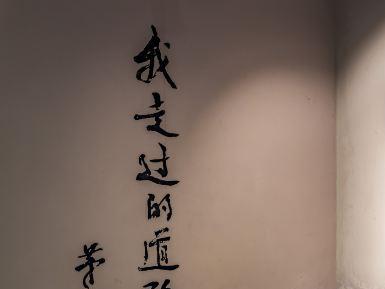 我走过的道
茅